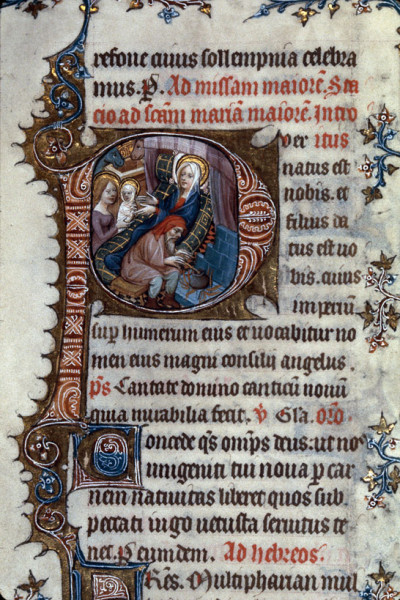 refone cuius sollempnia celebra
mus. P. Ad missam maiorē. Sta
cio ad scām mariām maiorē. Intro
Puer itus
natus est
nobis. et
filius da
tus est no
bis. cuius
imperiū
sup humerum eius et uocabitur no
men eius magni consilij angelus.
ps Cantate domino canticū nouū
quia mirabilia fecit. v Gla. Orō
Concede qs omps deus: ut nos
unigeniti tui noua p car
nem natiuitas liberet quos sub
peccati iugo uetusta seruitus te
net. p eumdem. Ad hebreos.
Fres. Multipharian mul